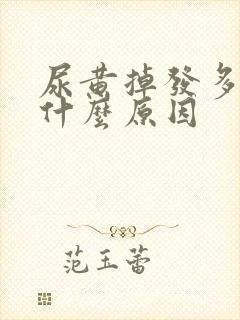 尿黄掉發多
什麼原因
范玉蕾